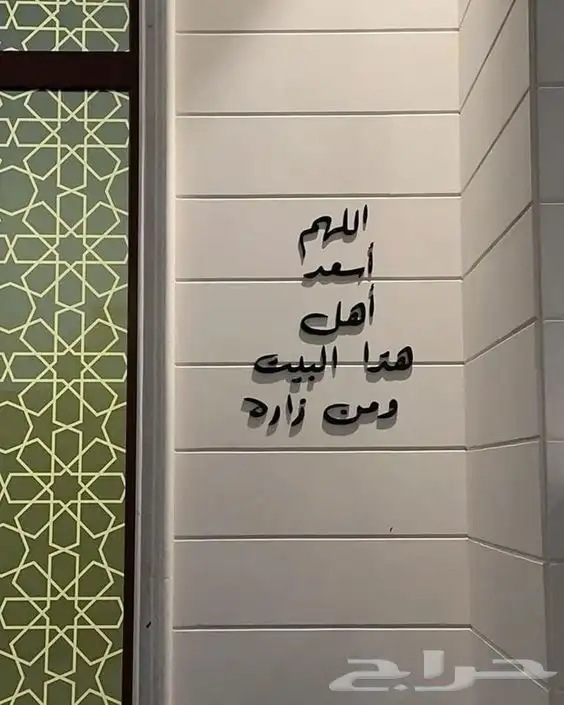 اللهم
أسعد
أهل
هذا البيت
ومن زاره
حراج